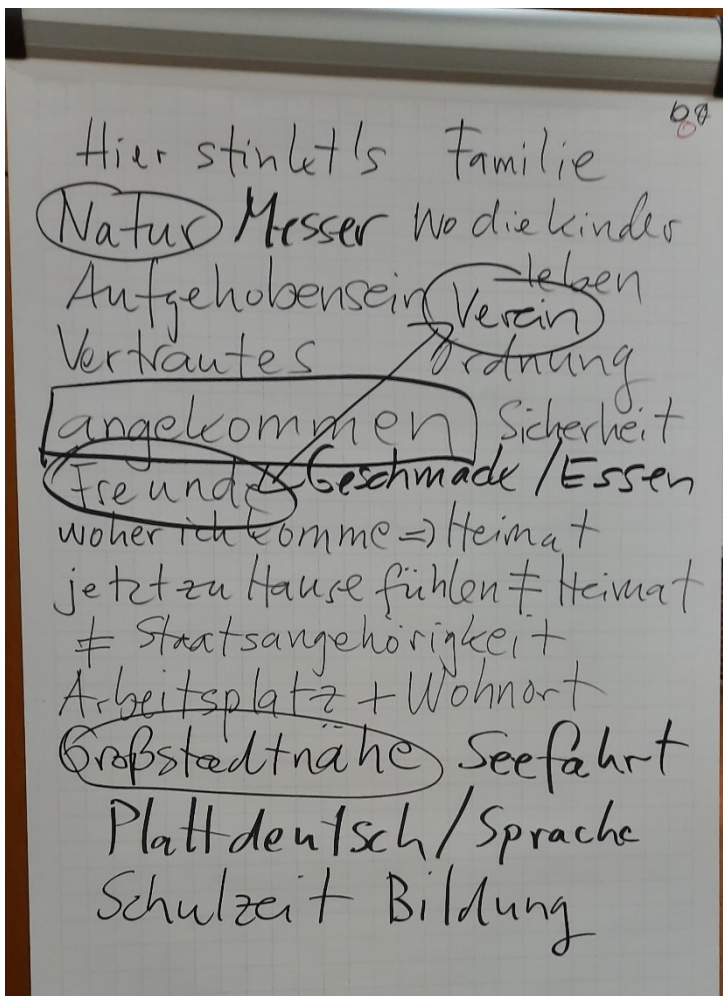 Hier stinkt's Familie
Natur Messer Wo die kinder
leben
Aufgehobensein Verein
Vertrautes Ordnung
angekommen Sicherheit
Freunde Geschmack/Essen
woher ich komme => Heimat
jetzt zu Hause fühlen ≠ Heimat
≠ Staatsangehörigkeit
Arbeitsplatz + Wohnort
Großstadtnähe Seefahrt
Plattdeutsch/Sprache
Schulzeit Bildung